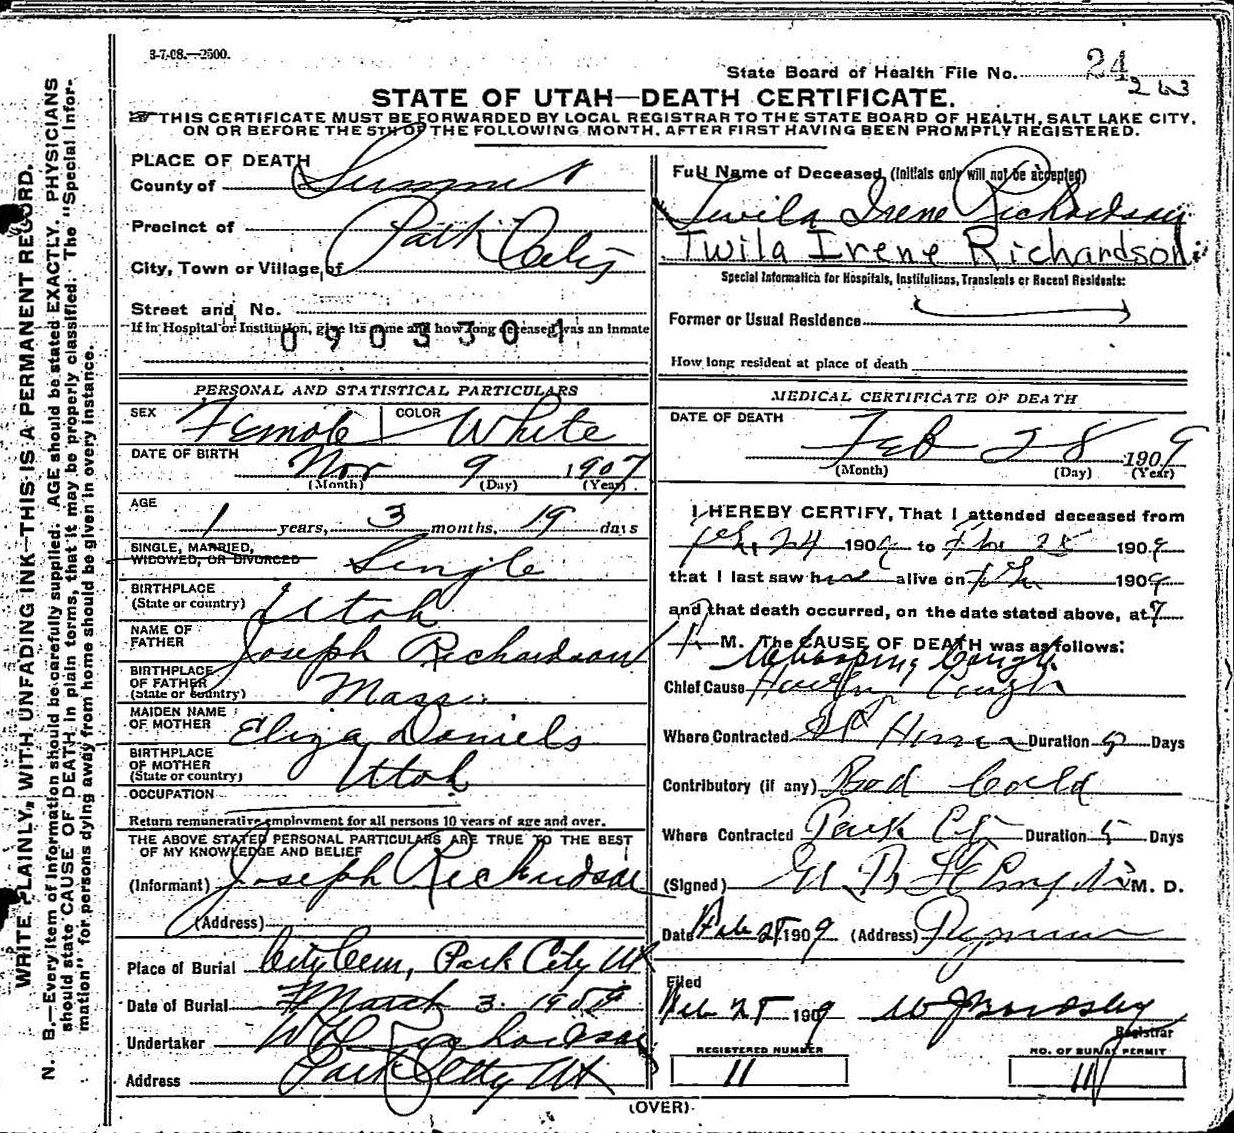 3-7-08.—2500.
State Board of Health File No. 24
263
STATE OF UTAH—DEATH CERTIFICATE.
THIS CERTIFICATE MUST BE FORWARDED BY LOCAL REGISTRAR TO THE STATE BOARD OF HEALTH, SALT LAKE CITY,
ON OR BEFORE THE 5TH OF THE FOLLOWING MONTH, AFTER FIRST HAVING BEEN PROMPTLY REGISTERED.
WRITE PLAINLY, WITH UNFADING INK—THIS IS A PERMANENT RECORD.
N. B.—Every item of information should be carefully supplied. AGE should be stated EXACTLY. PHYSICIANS
should state CAUSE OF DEATH in plain terms, that it may be properly classified. The "Special Infor-
mation" for persons dying away from home should be given in every instance.
PLACE OF DEATH
County of Summit
Precinct of
City, Town or Village, of Park City
Street and No.
If in Hospital or Institution, give its name and how long deceased was an Inmate
0903304
PERSONAL AND STATISTICAL PARTICULARS
SEX Female COLOR White
DATE OF BIRTH Nov 9 1907
(Month) (Day) (Year)
AGE 1 years, 3 months, 19 days
SINGLE, MARRIED,
WIDOWED, OR DIVORCED Single
BIRTHPLACE
(State or country) Utah
NAME OF
FATHER Joseph Richardson
BIRTHPLACE
OF FATHER
(State or country) Mass.
MAIDEN NAME
OF MOTHER Eliza Daniels
BIRTHPLACE
OF MOTHER
(State or country) Utah
OCCUPATION
Return remunerative employment for all persons 10 years of age and over.
THE ABOVE STATED PERSONAL PARTICULARS ARE TRUE TO THE BEST
OF MY KNOWLEDGE AND BELIEF
(Informant) Joseph Richardson
(Address)
Place of Burial City Cem, Park City Ut
Date of Burial March 3. 1909
Undertaker Richardson
Address Park City Ut
Full Name of Deceased (Initials only will not be accepted)
Twila Irene Richardson
Twila Irene Richardson
Special Information for Hospitals, Institutions, Transients or Recent Residents:
Former or Usual Residence
How long resident at place of death
MEDICAL CERTIFICATE OF DEATH
DATE OF DEATH
Feb 28 1909
(Month) (Day) (Year)
I HEREBY CERTIFY, That I attended deceased from
Feb. 24 1909 to Feb 28 1909
that I last saw her alive on Feb 1909
and that death occurred, on the date stated above, at 7
M. The CAUSE OF DEATH was as follows:
Whooping Cough.
Chief Cause Cough
Where Contracted At Home Duration 5 Days
Contributory (if any) Bad Cold
Where Contracted Park City Duration 5 Days
(Signed) M. D.
Date Feb 28 1909 (Address)
Filed
Feb 28 1909
Registrar
REGISTERED NUMBER
11
NO. OF BURIAL PERMIT
11
(OVER)